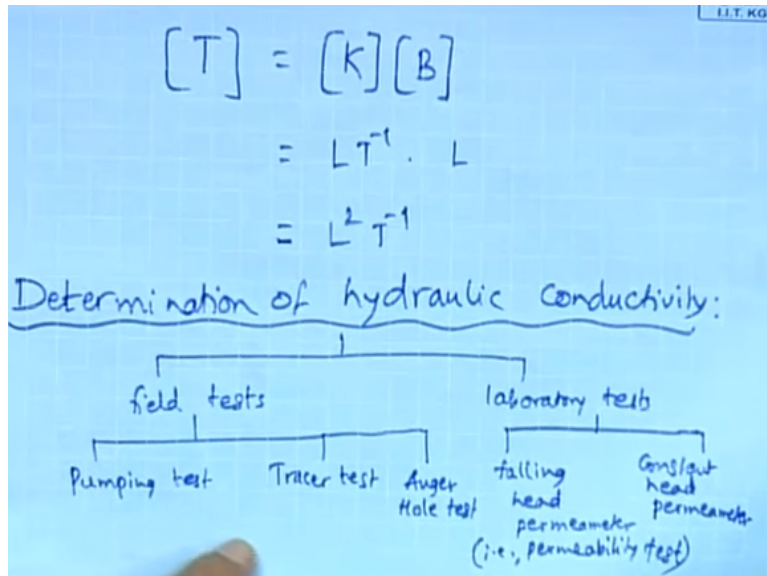 I.I.T. KG
[T] = [K][B]
= LT⁻¹ . L
= L² T⁻¹
Determination of hydraulic Conductivity:
field tests laboratory tests
Pumping test Tracer test Auger Hole test falling head permeameter (i.e., permeability test) Constant head permeameter